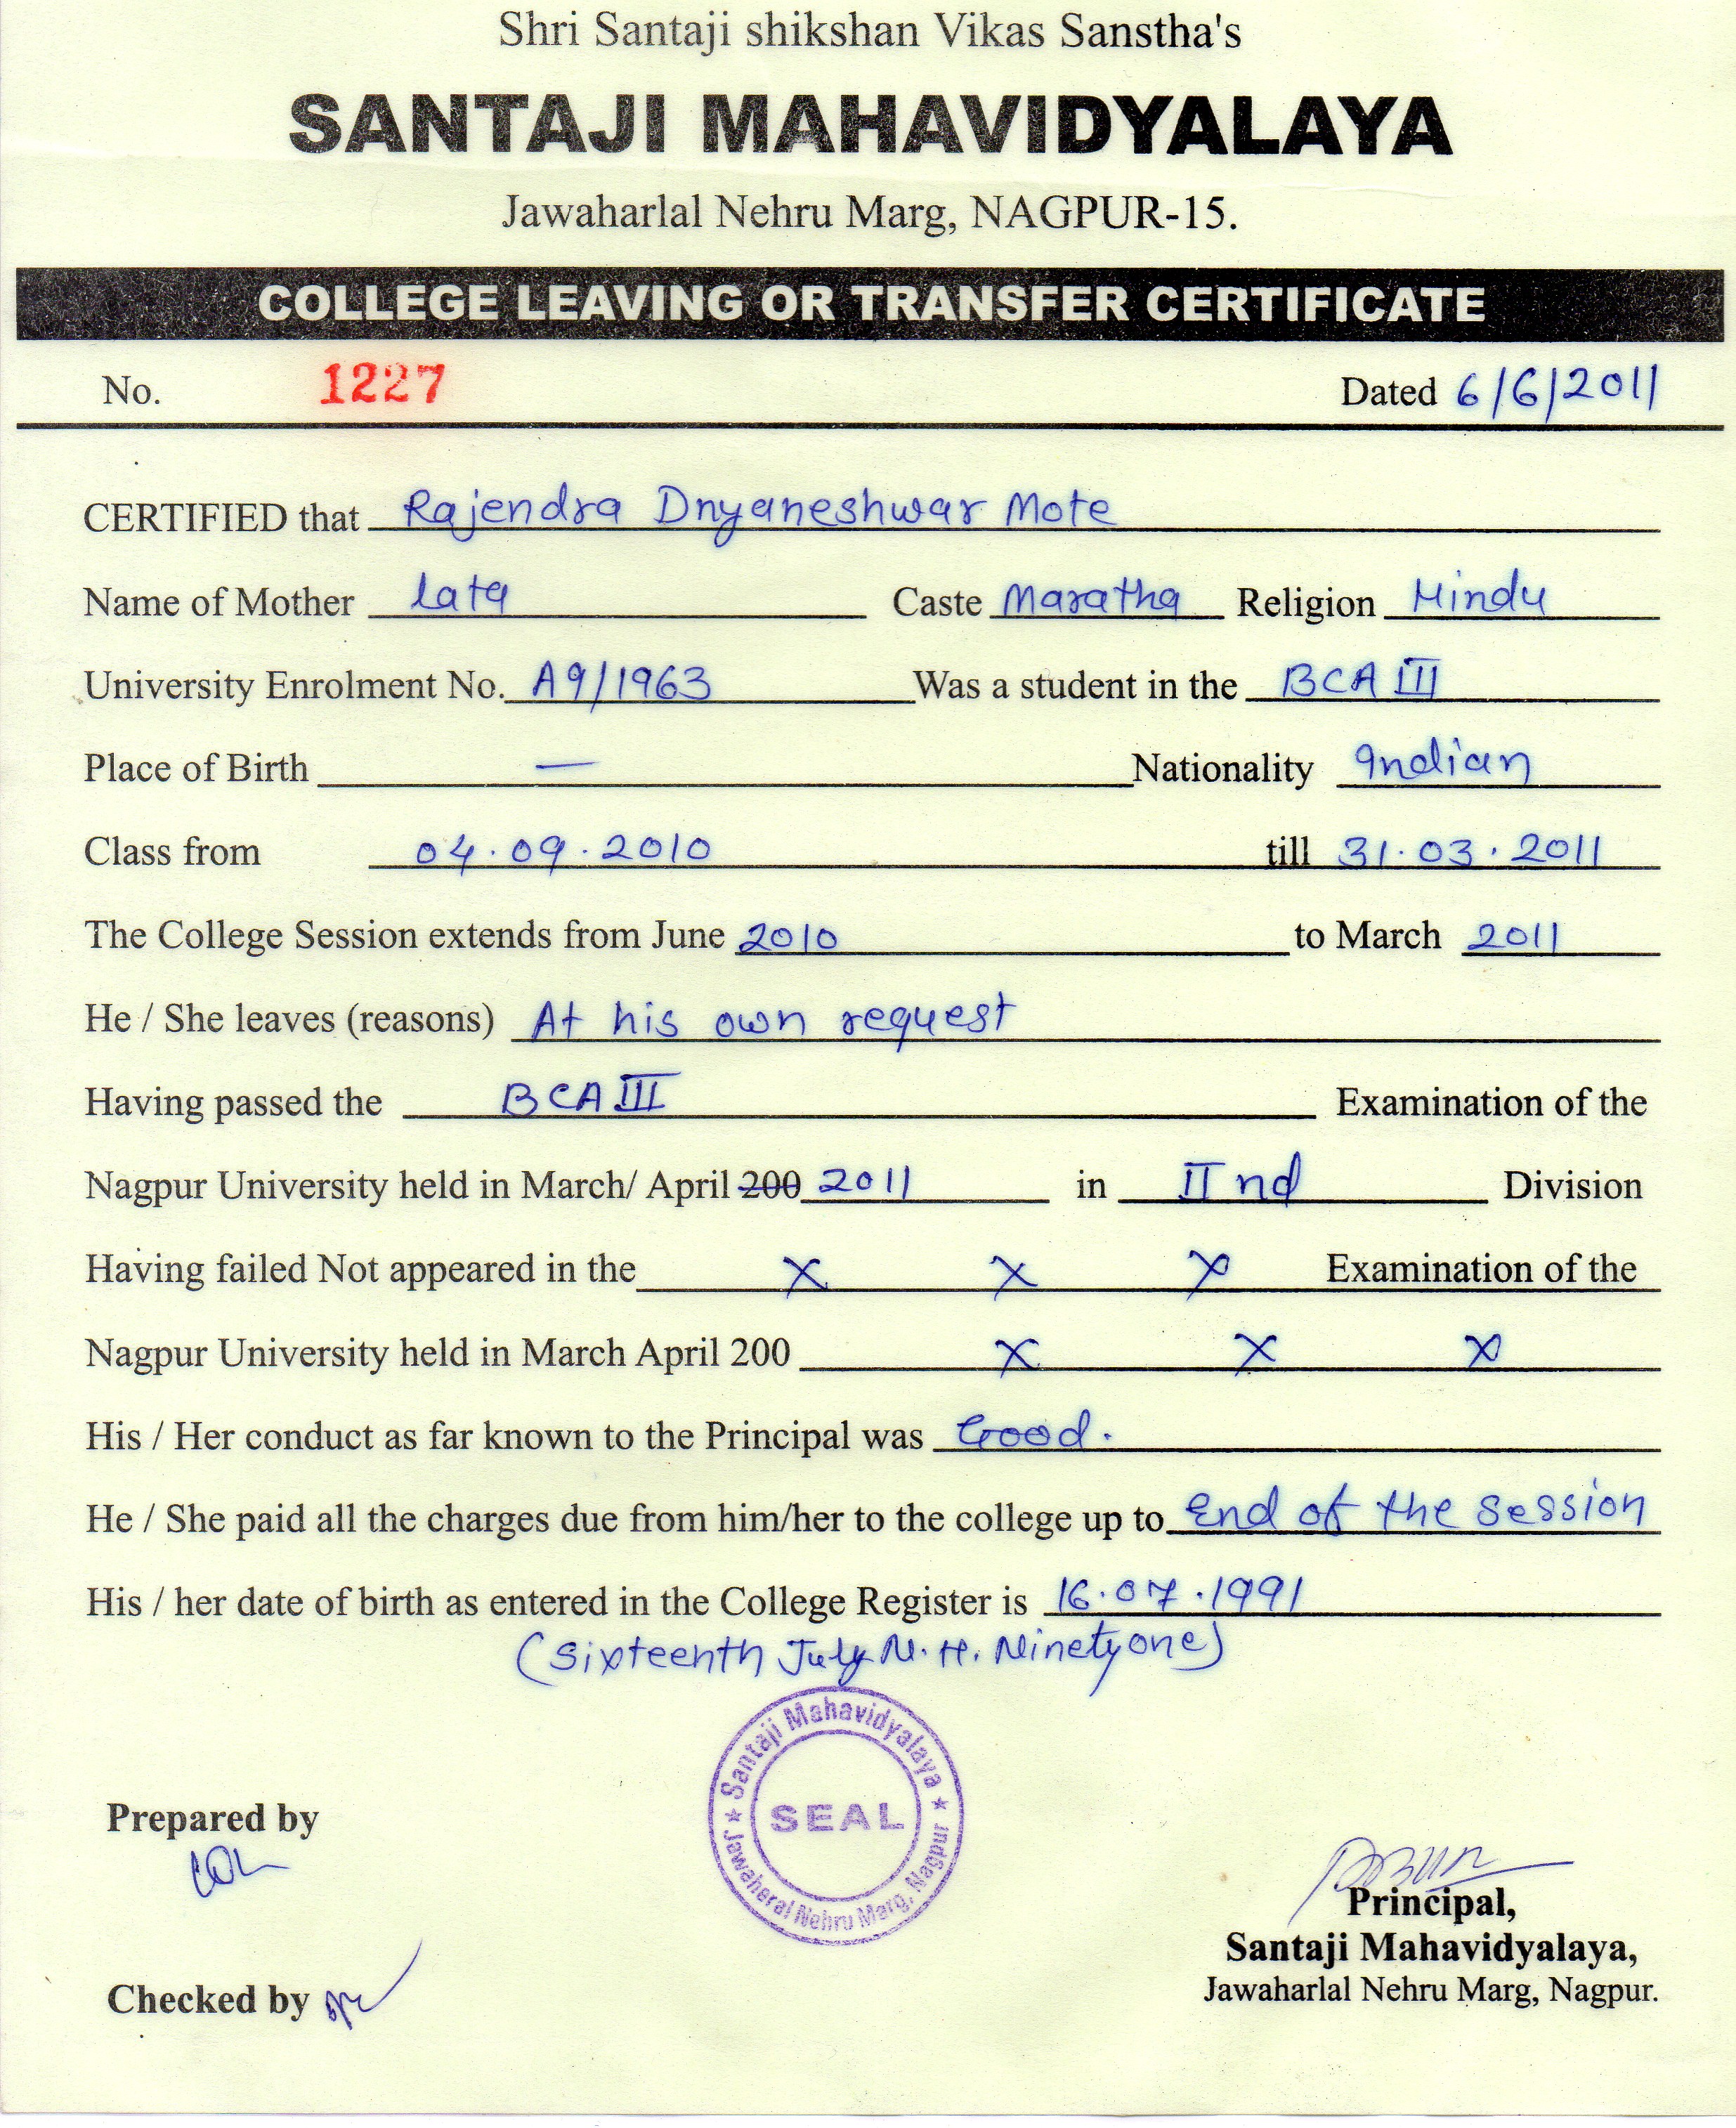 Shri Santaji shikshan Vikas Sanstha's
SANTAJI MAHAVIDYALAYA
Jawaharlal Nehru Marg, NAGPUR-15.
COLLEGE LEAVING OR TRANSFER CERTIFICATE
No. 1227 Dated 6/6/2011
CERTIFIED that Rajendra Dnyaneshwar Mote
Name of Mother lata Caste Maratha Religion Hindu
University Enrolment No. A9/1963 Was a student in the BCA III
Place of Birth — Nationality Indian
Class from 04.09.2010 till 31.03.2011
The College Session extends from June 2010 to March 2011
He / She leaves (reasons) At his own request
Having passed the BCA III Examination of the
Nagpur University held in March/ April 200 2011 in II nd Division
Having failed Not appeared in the x x x Examination of the
Nagpur University held in March April 200 x x x
His / Her conduct as far known to the Principal was Good.
He / She paid all the charges due from him/her to the college up to End of the session
His / her date of birth as entered in the College Register is 16.07.1991
(Sixteenth July N.H. Ninetyone)
Santaji Mahavidyalaya
SEAL
Jawaheral Nehru Marg, Nagpur
Prepared by
Principal,
Santaji Mahavidyalaya,
Jawaharlal Nehru Marg, Nagpur.
Checked by